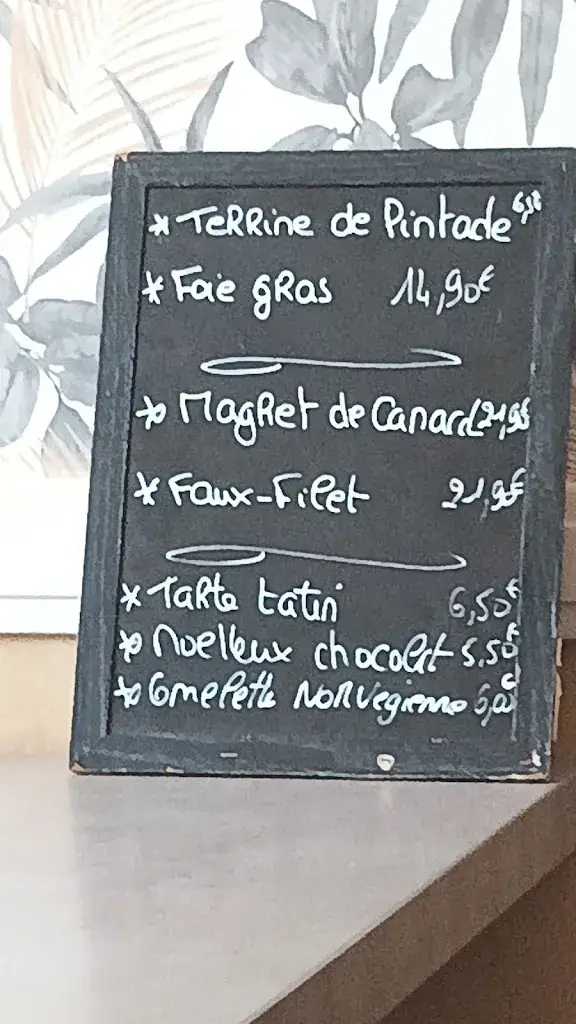 * Terrine de Pintade
* Foie gras 14,90€
* Magret de Canard 21,90€
* Faux-Filet 21,90€
* Tarte tatin 6,50€
* Moelleux chocolat 5.50€
* Omelette Norvegienne